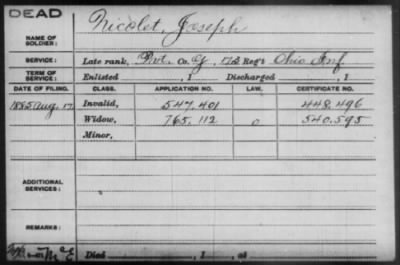 DEAD
NAME OF SOLDIER: Nicolet, Joseph
SERVICE: Late rank, Pvt. Co. G, 172 Reg't Ohio Inf.
TERM OF SERVICE: Enlisted , 1 Discharged , 1
DATE OF FILING. CLASS. APPLICATION NO. LAW. CERTIFICATE NO.
1885 Aug. 17 Invalid, 547.401 448.496
Widow, 765.112 0 540.595
Minor,
ADDITIONAL SERVICES:
REMARKS:
Died , 1 , at